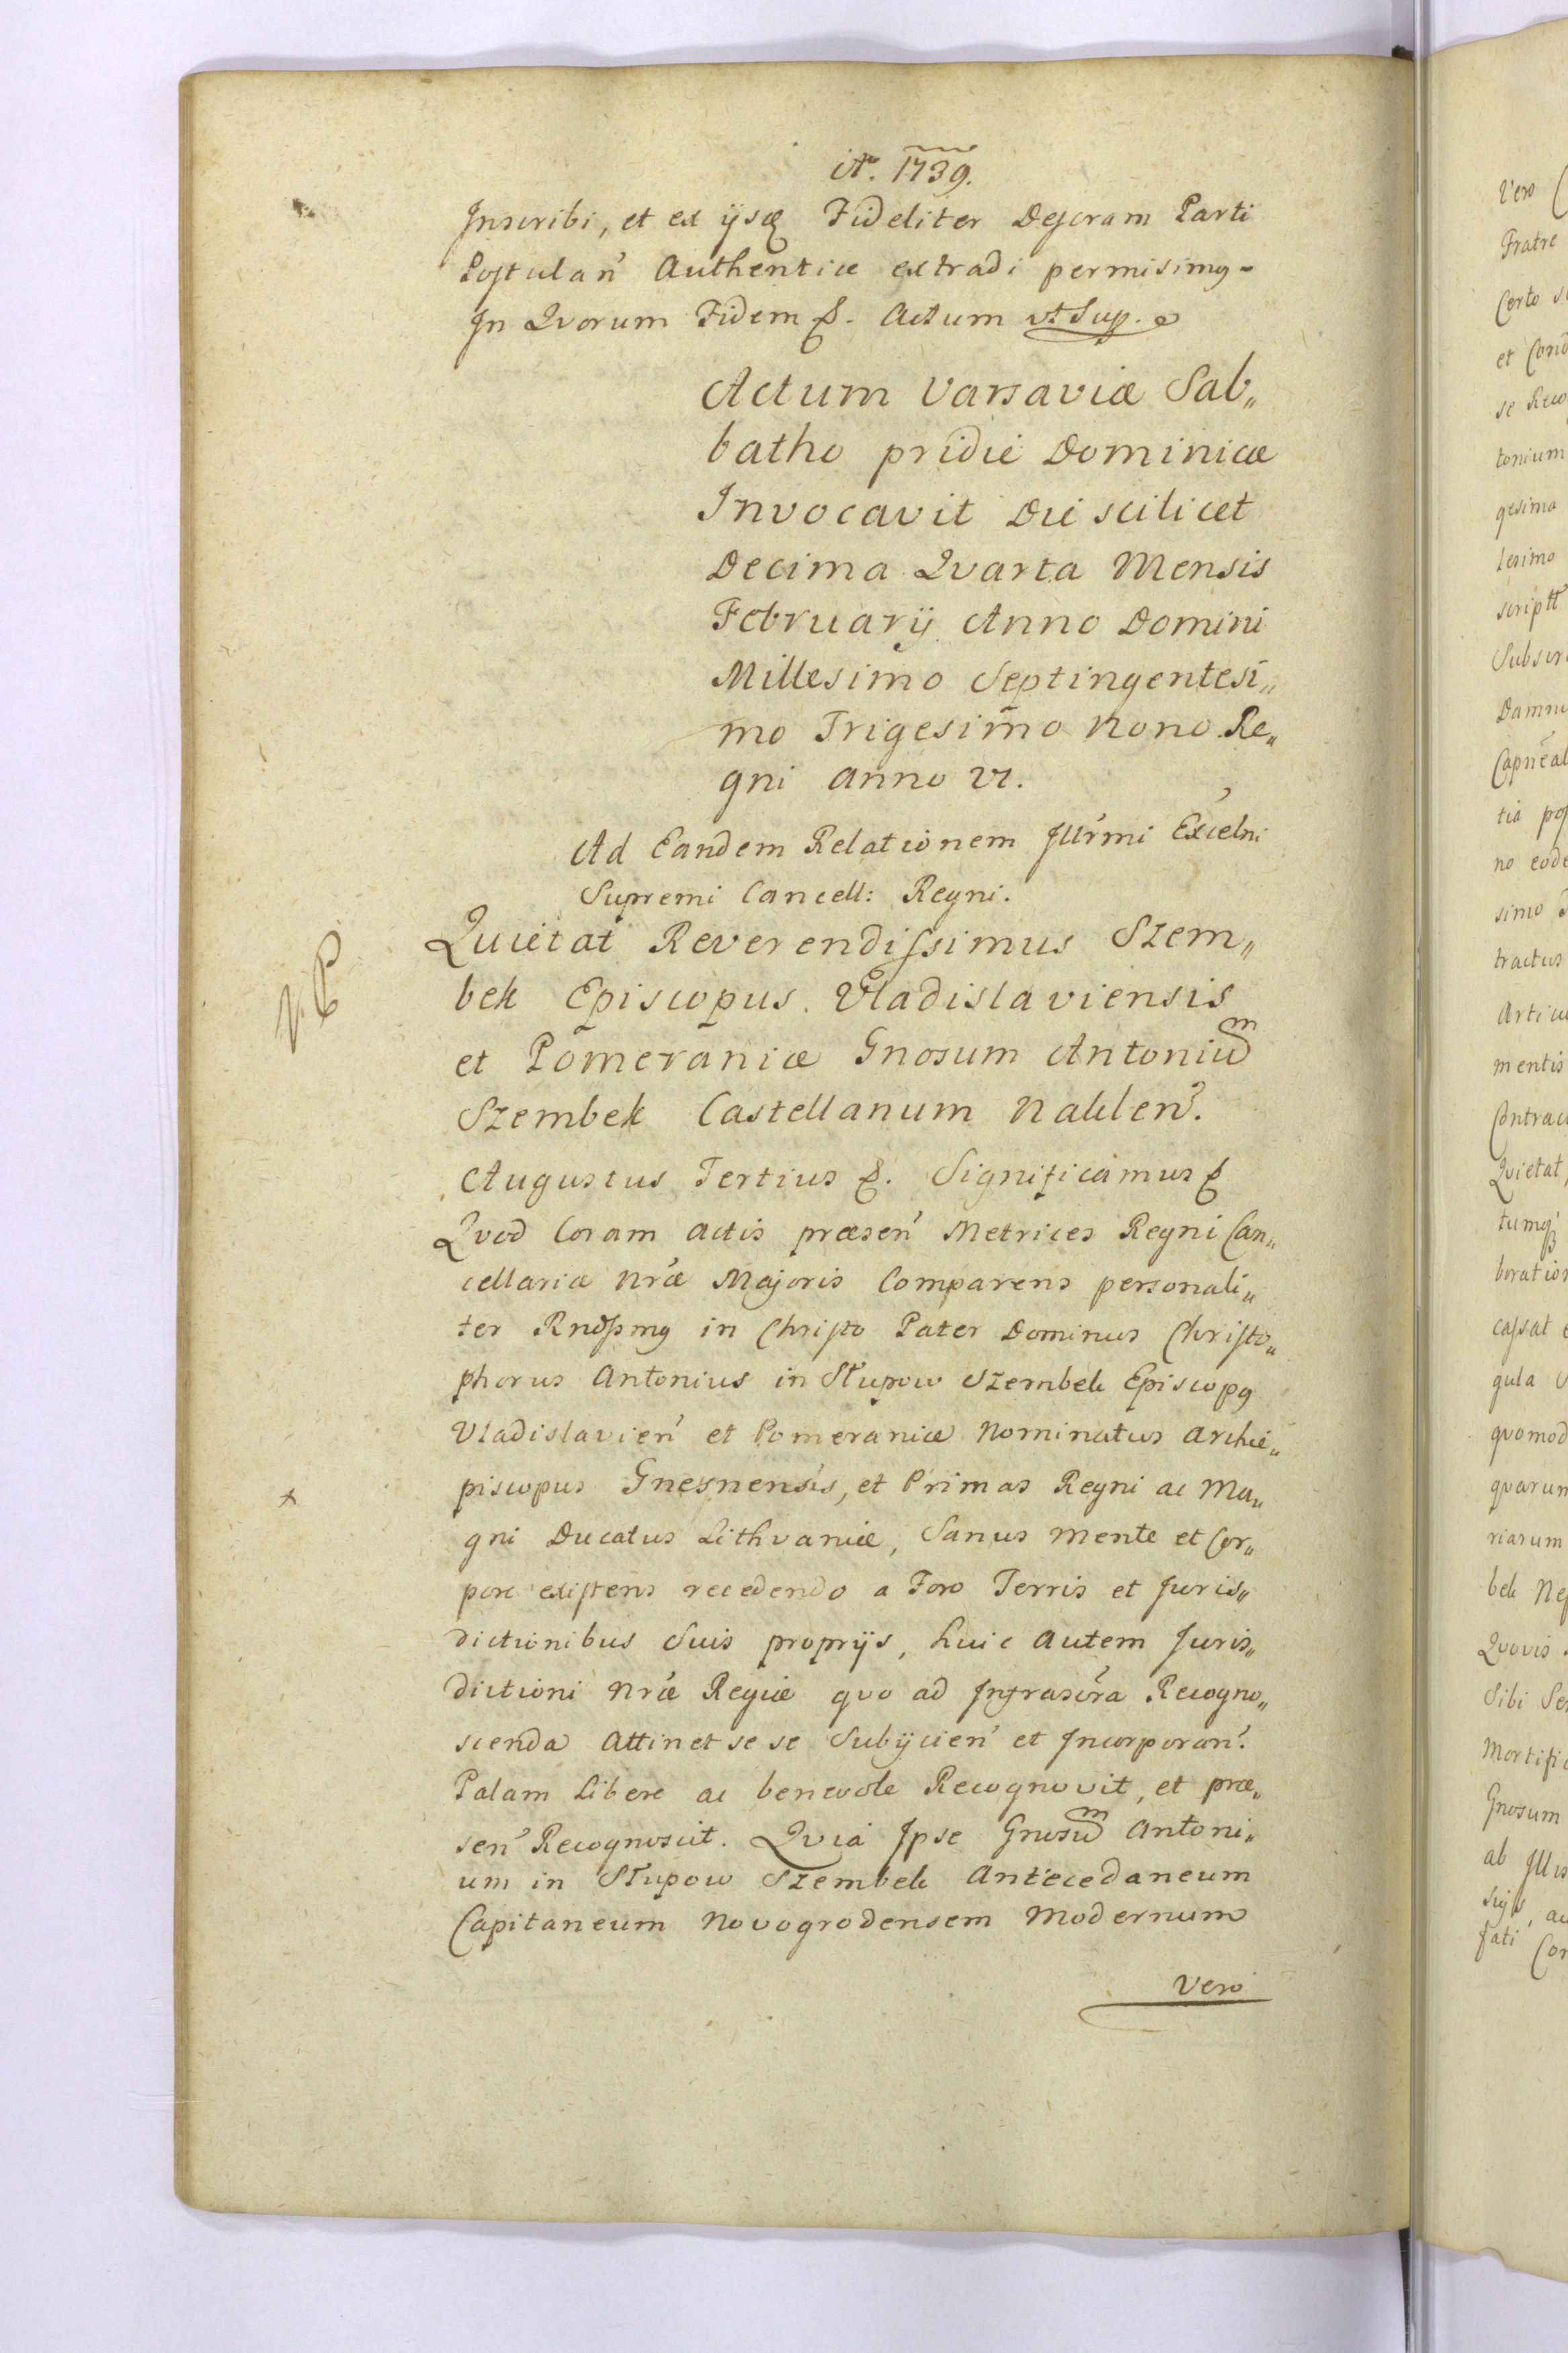 Aº. 1739.
Inscribi, et ex ijsq Fideliter Descram Parti
Postulan̄ Authentice extradi permisimq –
In Qvorum Fidem &. Actum vt Sup.
Actum Varsaviæ Sab„
batho pridie Dominicæ
Invocavit Die scilicet
Decima Qvarta Mensis
Februarij Anno Domini
Millesimo Septingentesi„
mo Trigesim̄o Nono Re„
gni Anno VI.
Ad Eandem Relationem Jllr̄mi Excelni
Supremi Cancell: Regni.
Quietat Reverendissimus Szem„
bek Episcopus Vladislaviensis
et Pomeraniæ Gnosum Antoniu͠m
Szembek Castellanum Naklen̄.
Augustus Tertius &. Significamus &
Qvod Coram Actis præsen̄ Metrices Regni Can„
cellariæ Nr̄æ Majoris Comparens personali„
ter Rndssmq in Christo Pater Dominus Christo„
phorus Antonius in Słupow Szembek Episcopq
Vladislavien̄ et Pomeraniæ Nominatus Archie„
piscopus Gnesnensis, et Primas Regni ac Ma„
gni Ducatus Lithvaniæ, Sanus Mente et Cor„
pore existens recedendo a Foro Terris et Juris„
dictionibus Suis proprijs, huic Autem Juris„
dictioni Nr̄æ Regiæ qvo ad Infrascr̄a Recogno„
scenda Attinet se se Subijcien̄ et Incorporan̄.
Palam Libere ac benevole Recognovit, et præ„
sen̄ Recognoscit. Qvia Ipse Gnosu͠m Antoni„
um in Słupow Szembek Antecedaneum
Capitaneum Novogrodensem Modernum
Vero
x
Vero
Fratre
Certo
et Cond
se Reco
tonium
gesimo
lesimo
script̄
Subscri
Damni
tia
no eode
simo
tractus
Articu
mentis
Contrac
Qvietat,
tumq
boration
cassat
gula
qvomod
qvarum
riarum
bek Nep
Qvovis
Sibi Se
Mortific
Gnosum
ab Illis
fati Con